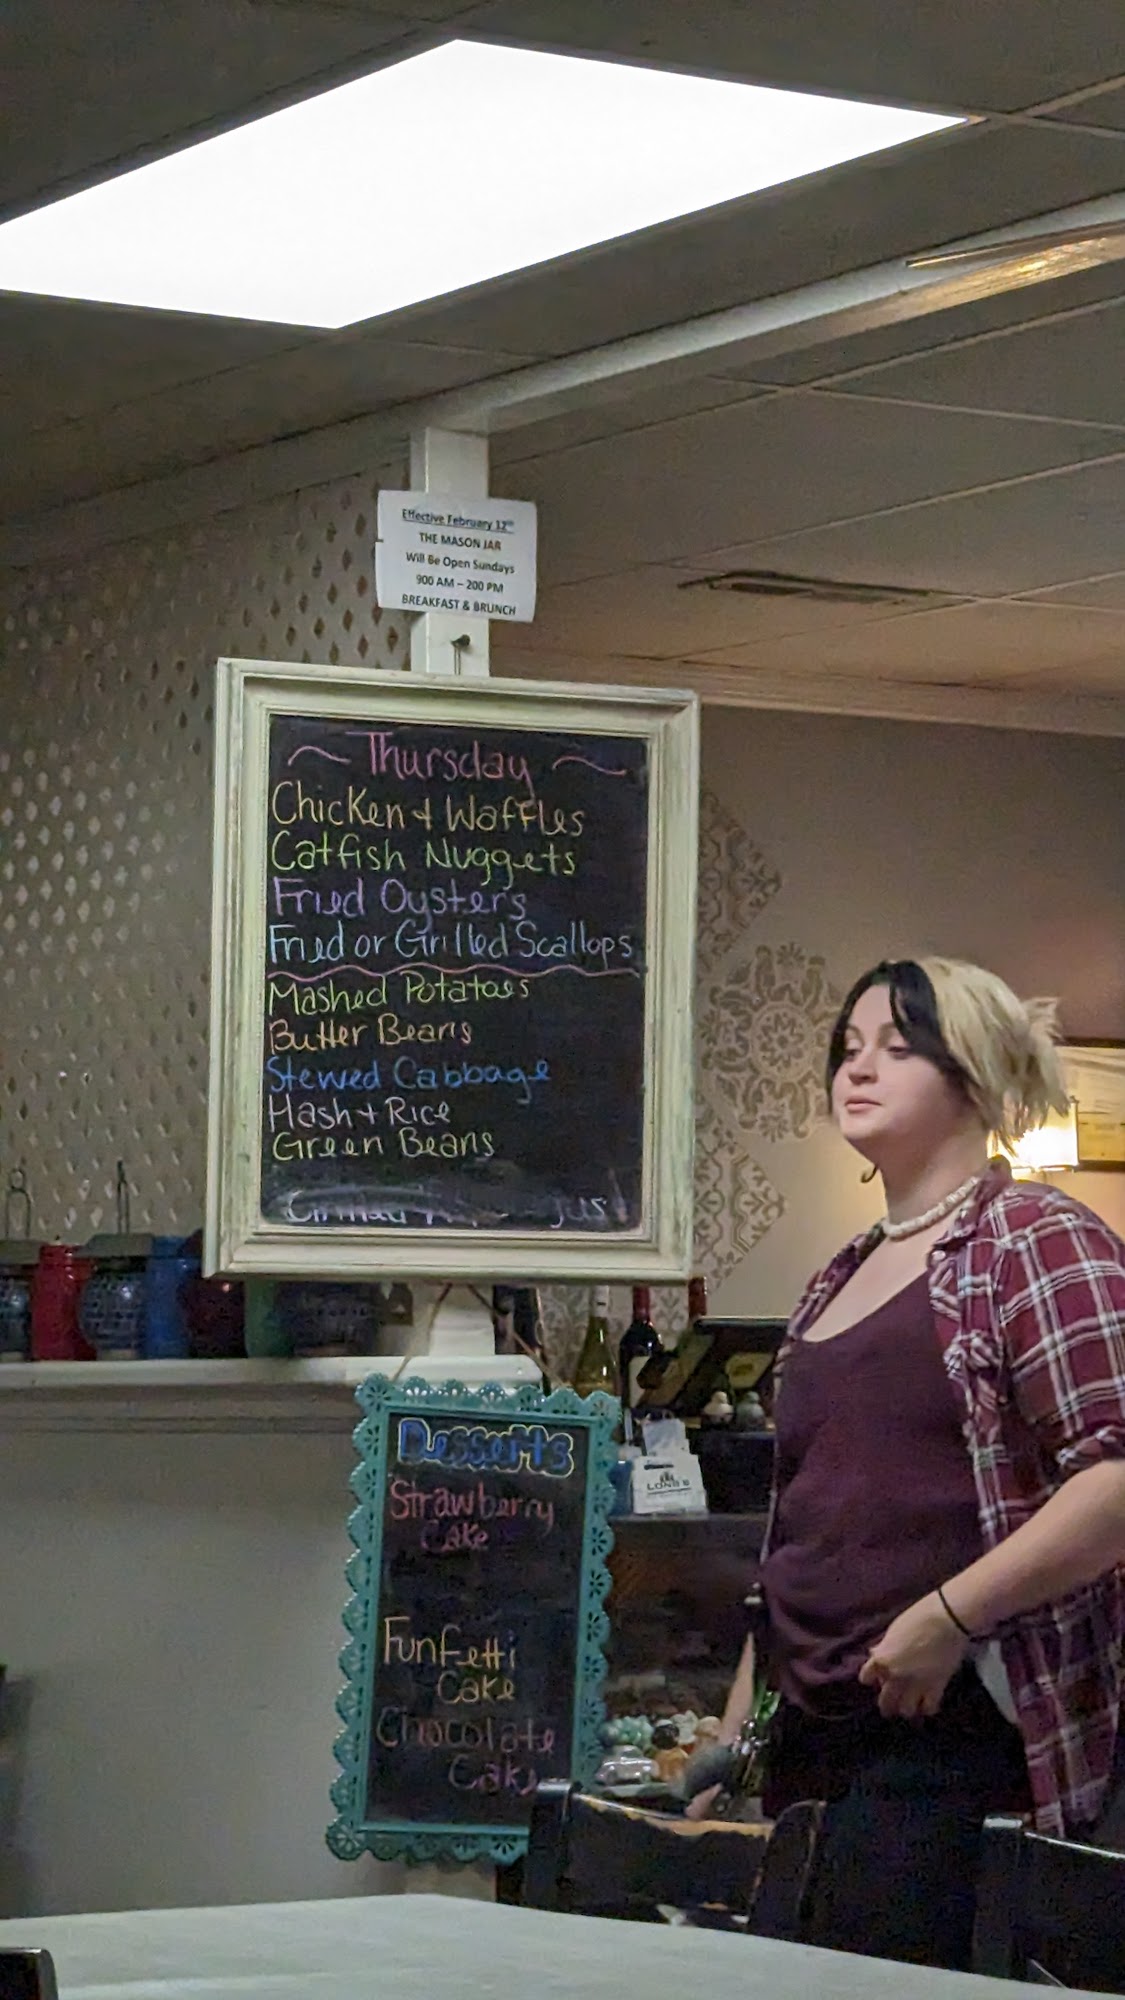 Effective February 12th
THE MASON JAR
Will Be Open Sundays
900 AM – 200 PM
BREAKFAST & BRUNCH
~ Thursday ~
Chicken + Waffles
Catfish Nuggets
Fried Oysters
Fried or Grilled Scallops
Mashed Potatoes
Butter Beans
Stewed Cabbage
Hash + Rice
Green Beans
Desserts
Strawberry
Cake
Funfetti
Cake
Chocolate
Cake
LONG'S